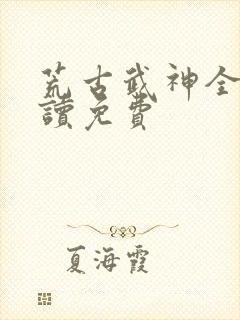 荒古武神全
讀免費
夏海霞